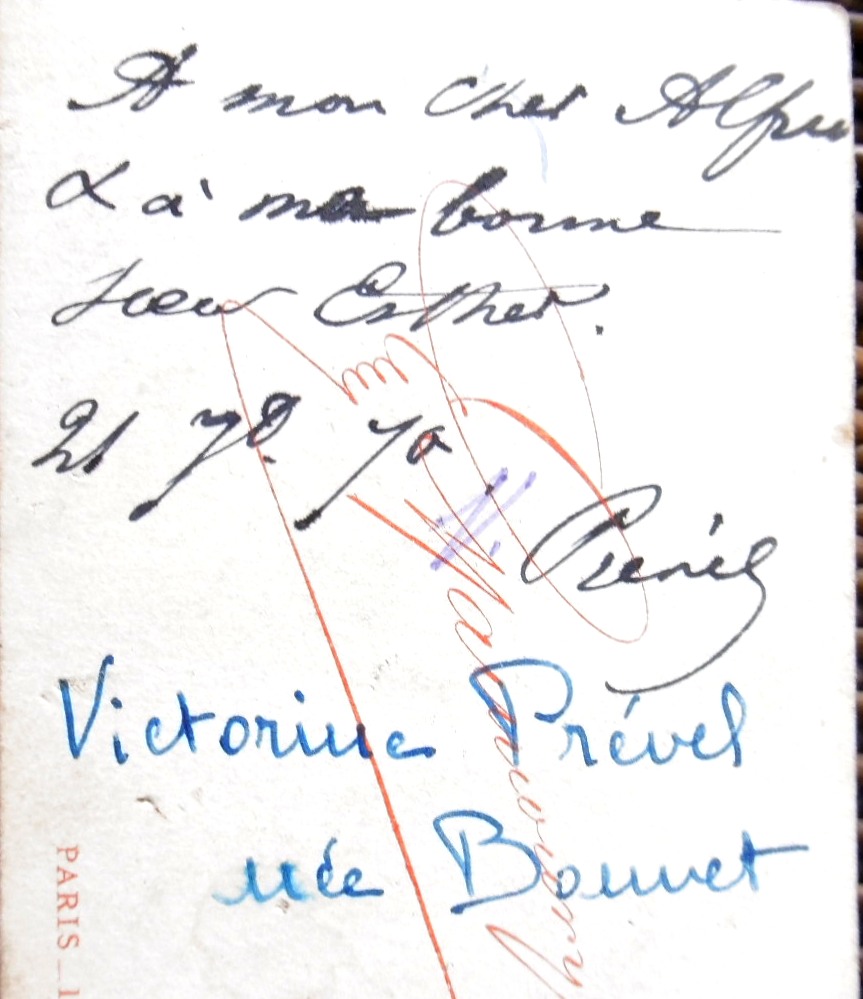 A mon cher Alfre
& à ma bonne
soeur Esther.
21 7b. 70
Prével
Victorine Prével
née Bonnet
PARIS